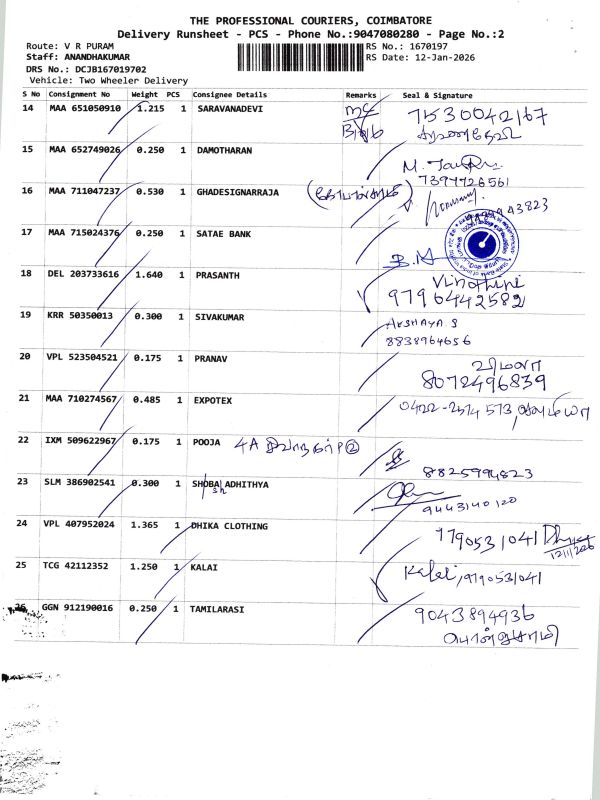 THE PROFESSIONAL COURIERS, COIMBATORE
Delivery Runsheet - PCS - Phone No.:9047080280 - Page No.:2
Route: V R PURAM
RS No.: 1670197
Staff: ANANDHAKUMAR
RS Date: 12-Jan-2026
DRS No.: DCJB167019702
Vehicle: Two Wheeler Delivery
S No Consignment No Weight PCS Consignee Details Remarks Seal & Signature
14 MAA 651050910 1.215 1 SARAVANADEVI 7530042167
சரவணதேவி
15 MAA 652749026 0.250 1 DAMOTHARAN
7397726561
16 MAA 711047237 0.530 1 GHADESIGNARRAJA
17 MAA 715024376 0.250 1 SATAE BANK
18 DEL 203733616 1.640 1 PRASANTH Vinothini
9796442582
19 KRR 50350013 0.300 1 SIVAKUMAR AKSHAYA S
8838964656
20 VPL 523504521 0.175 1 PRANAV விமலா
8072496839
21 MAA 710274567 0.485 1 EXPOTEX 0422-2574 573
22 IXM 509622967 0.175 1 POOJA 4A
8825994823
23 SLM 386902541 0.300 1 SHOBA ADHITHYA sh
9443140120
24 VPL 407952024 1.365 1 DHIKA CLOTHING 1790531041
12/1/2026
25 TCG 42112352 1.250 1 KALAI Kalai, 9790531041
26 GGN 912190016 0.250 1 TAMILARASI 9043894936
பொன்னுசாமி